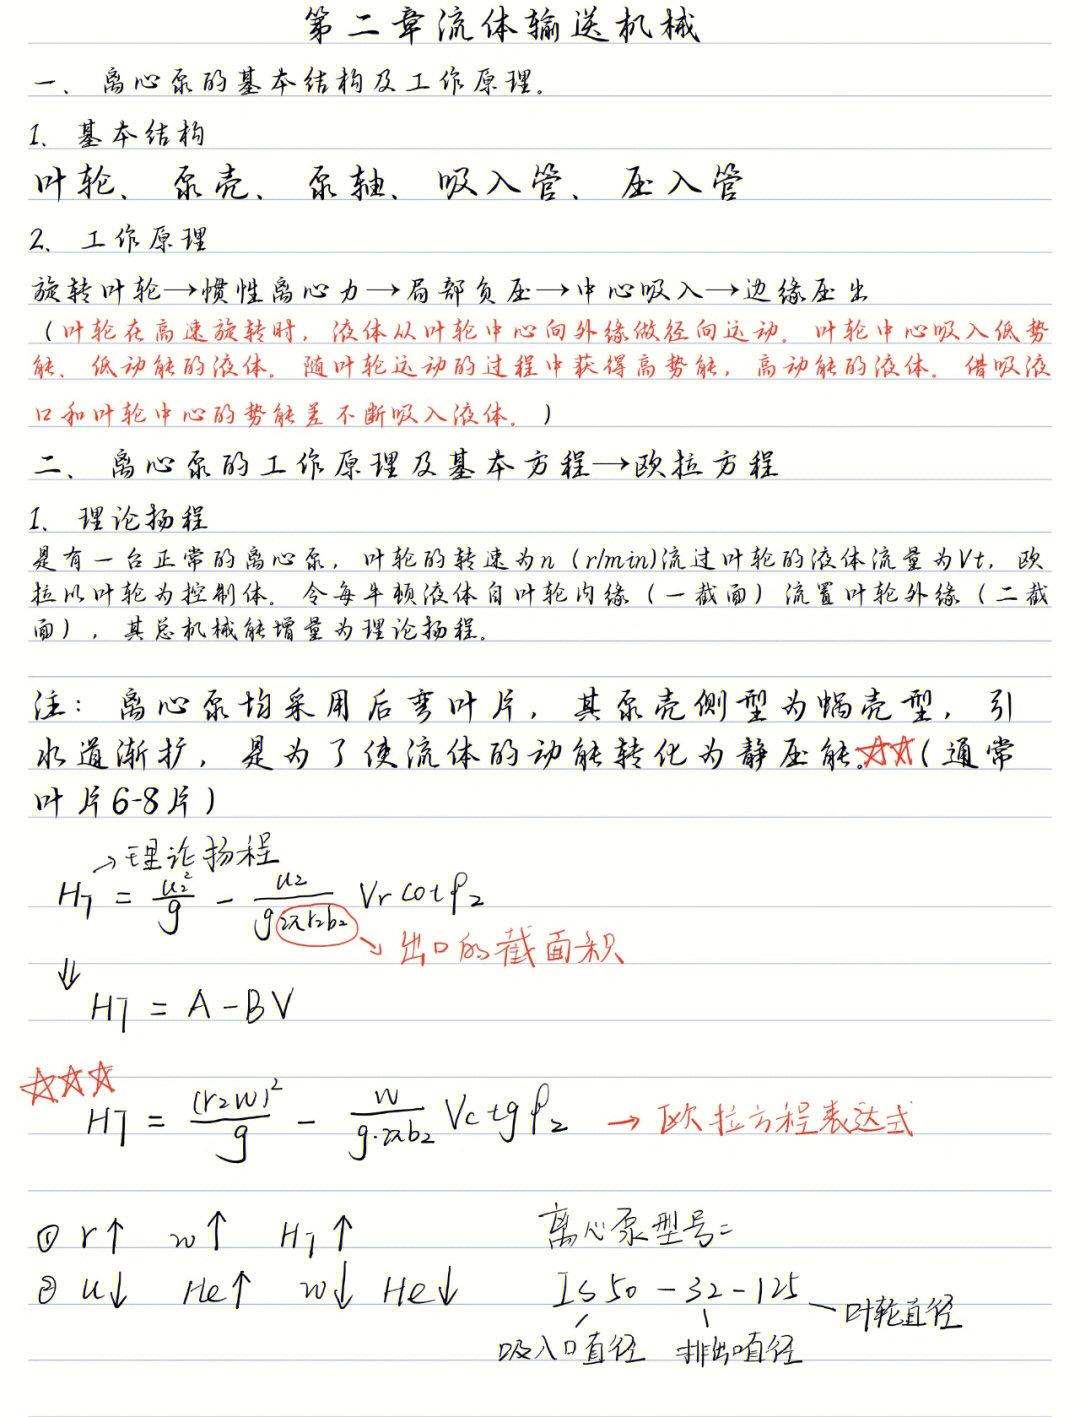 第二章流体输送机械
一、离心泵的基本结构及工作原理。
1、基本结构
叶轮、泵壳、泵轴、吸入管、压入管
2、工作原理
旋转叶轮→惯性离心力→局部负压→中心吸入→边缘压出
(叶轮在高速旋转时，液体从叶轮中心向外缘做径向运动。叶轮中心吸入低势
能、低动能的液体。随叶轮运动的过程中获得高势能，高动能的液体。借吸液
口和叶轮中心的势能差不断吸入液体。)
二、离心泵的工作原理及基本方程→欧拉方程
1、理论扬程
是有一台正常的离心泵，叶轮的转速为n (r/min)流过叶轮的液体流量为Vt，欧
拉以叶轮为控制体。令每牛顿液体自叶轮内缘(一截面)流置叶轮外缘(二截
面)，其总机械能增量为理论扬程。
注：离心泵均采用后弯叶片，其泵壳侧型为蜗壳型，引
水道渐扩，是为了使流体的动能转化为静压能。☆☆(通常
叶片6-8片)
→理论扬程
H_T = u₂²/g - u₂/(g2πr₂b₂) Vr cotρ₂
→出口的截面积
⇓
H_T = A-BV
☆☆☆
H_T = (r₂w)²/g - w/(g·2πb₂) Vctgρ₂ → 欧拉方程表达式
① r↑ w↑ H_T↑
② u↓ He↑ w↓ He↓
离心泵型号=
IS50-32-125
叶轮直径
吸入口直径 排出口直径